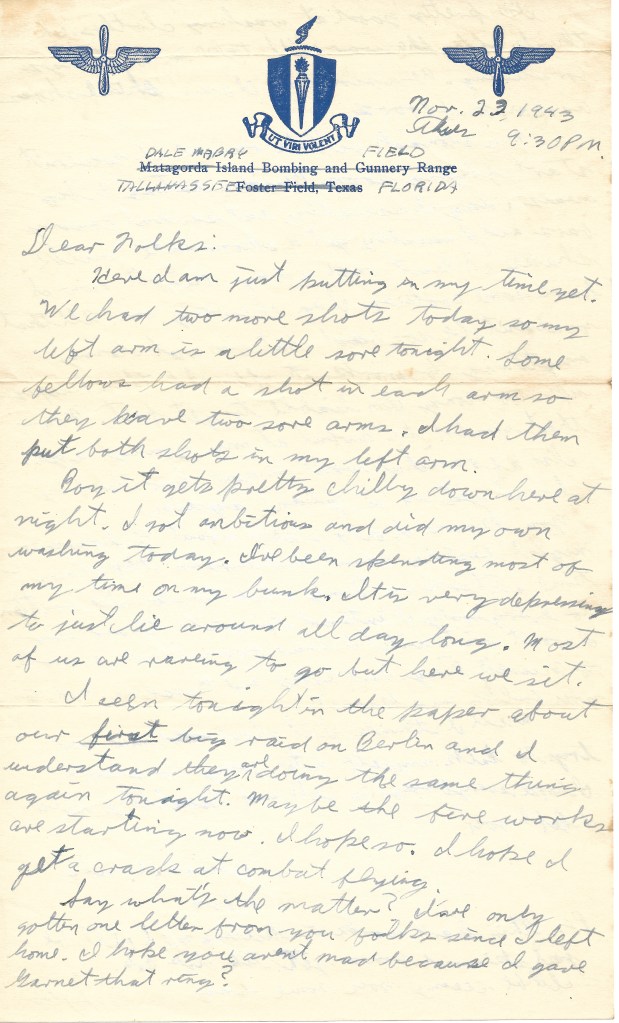 UT VIRI VOLENT
Nov. 23 1943
9:30 P.M.
DALE MABRY FIELD
Matagorda Island Bombing and Gunnery Range
TALLAHASSEE Foster Field, Texas FLORIDA
Dear Folks:
Here I am just putting in my time yet.
We had two more shots today so my
left arm is a little sore tonight. Some
fellows had a shot in each arm so
they have two sore arms. I had them
put both shots in my left arm.
Boy it gets pretty chilly down here at
night. I got ambitious and did my own
washing today. I've been spending most of
my time on my bunk. It is very depressing
to just lie around all day long. Most
of us are rareing to go but here we sit.
I seen tonight in the paper about
our first big raid on Berlin and I
understand they are doing the same thing
again tonight. Maybe the fire works
are starting now. I hope so. I hope I
get a crack at combat flying.
Say what's the matter? I've only
gotten one letter from you folks since I left
home. I hope you aren't mad because I gave
Garnet that ring?